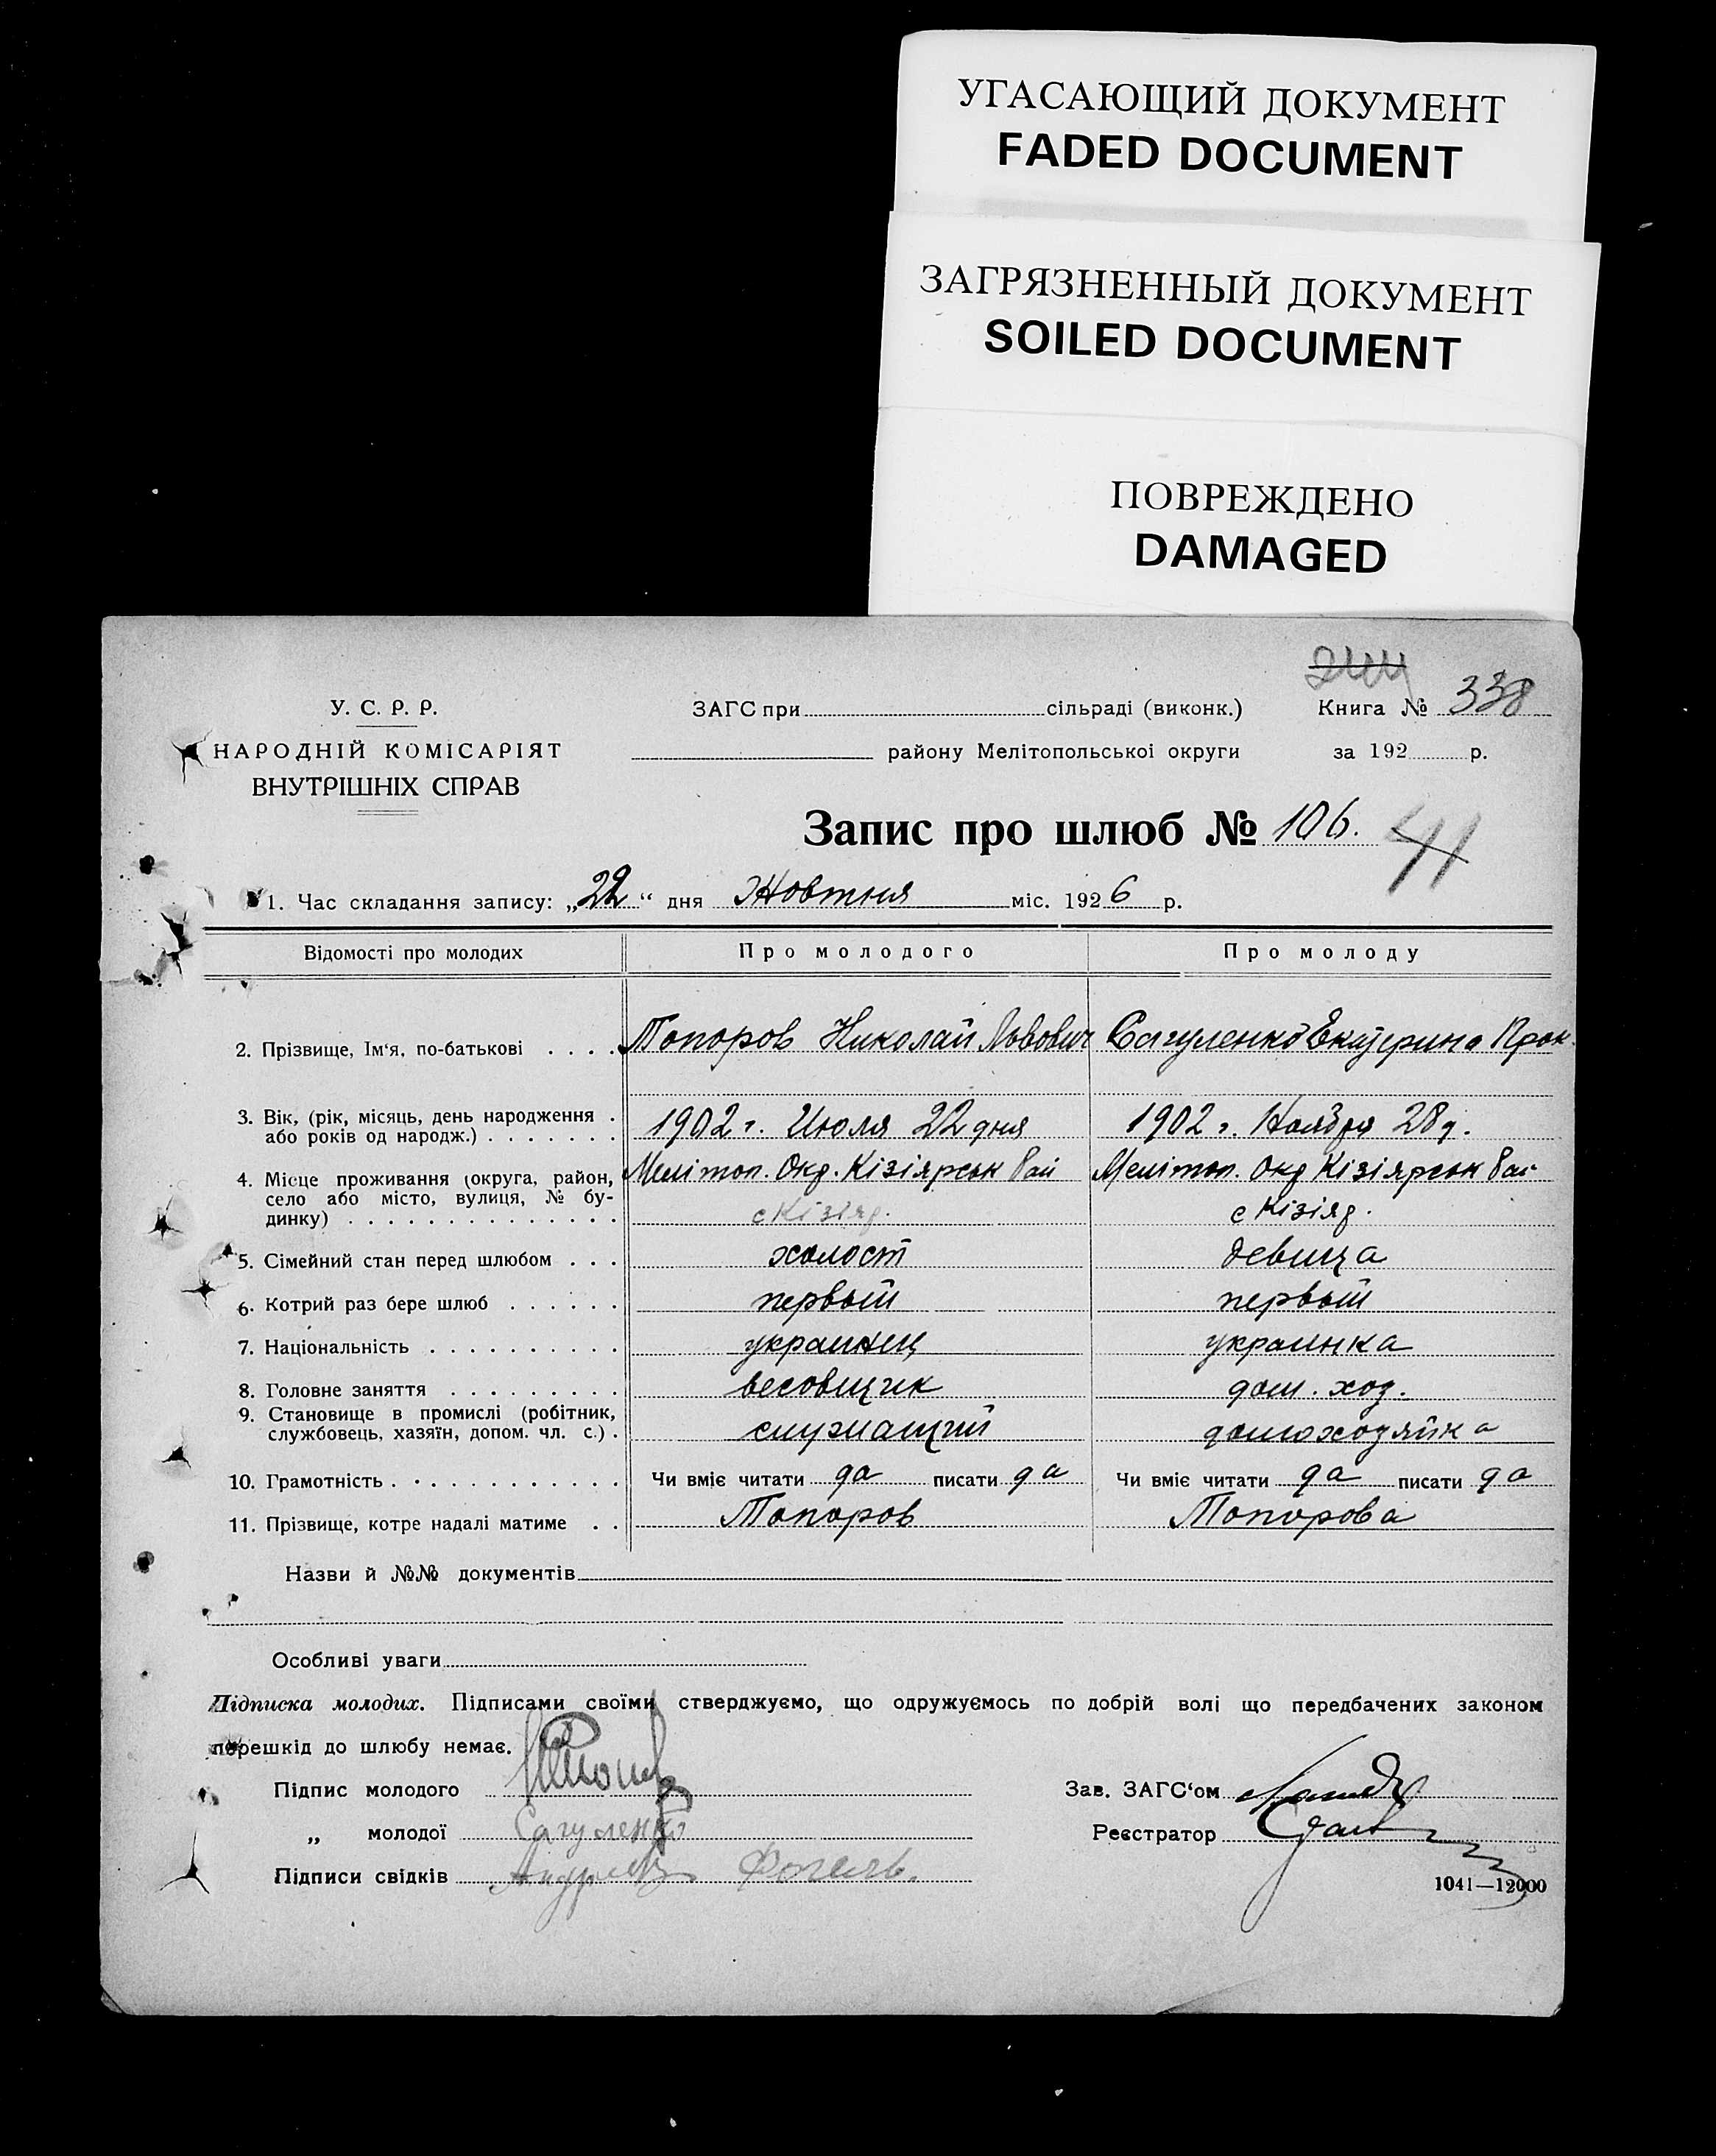 УГАСАЮЩИЙ ДОКУМЕНТ
FADED DOCUMENT
ЗАГРЯЗНЕННЫЙ ДОКУМЕНТ
SOILED DOCUMENT
ПОВРЕЖДЕНО
DAMAGED
У. С. Р. Р.
НАРОДНІЙ КОМІСАРІЯТ
ВНУТРІШНІХ СПРАВ
ЗАГС при сільраді (виконк.)
району Мелітопольскої округи
Книга № 338
за 192 р.
Запис про шлюб № 106.
41
1. Час складання запису: „22“ дня Жовтня міс. 1926 р.
Відомості про молодих Про молодого Про молоду
2. Прізвище, Ім‘я, по-батькові . . . . Топоров Николай Львович Сагуленко Екатерина Прок.
3. Вік, (рік, місяць, день народження . 1902 г. Июля 22 дня 1902 г. Ноября 28 д.
або років од народж.) . . . . . . .
4. Місце проживання (округа, район, Меліton. Окр. Кізіярськ Рай Меліton. Окр Кізіярськ Рай
село або місто, вулиця, № бу-
динку) . . . . . . . . . . . . . . с Кізіяр. с Кізіяр.
5. Сімейний стан перед шлюбом . . . холост девица
6. Котрий раз бере шлюб . . . . . . первый первый
7. Національність . . . . . . . . . . украинец украинка
8. Головне заняття . . . . . . . . . весовщик дом. хоз.
9. Становище в промислі (робітник,
службовець, хазяїн, допом. чл. с.) . служащий домохозяйка
10. Грамотність . . . . . . . . . . . Чи вміє читати да писати да Чи вміє читати да писати да
11. Прізвище, котре надалі матиме . . Топоров Топорова
Назви й №№ документів
Особливі уваги
Підписка молодих. Підписами своїми стверджуємо, що одружуємось по добрій волі що передбачених законом
перешкід до шлюбу немає.
Підпис молодого
„ молодої Сагуленко
Підписи свідків
Зав. ЗАГС‘ом
Реєстратор
1041—12000